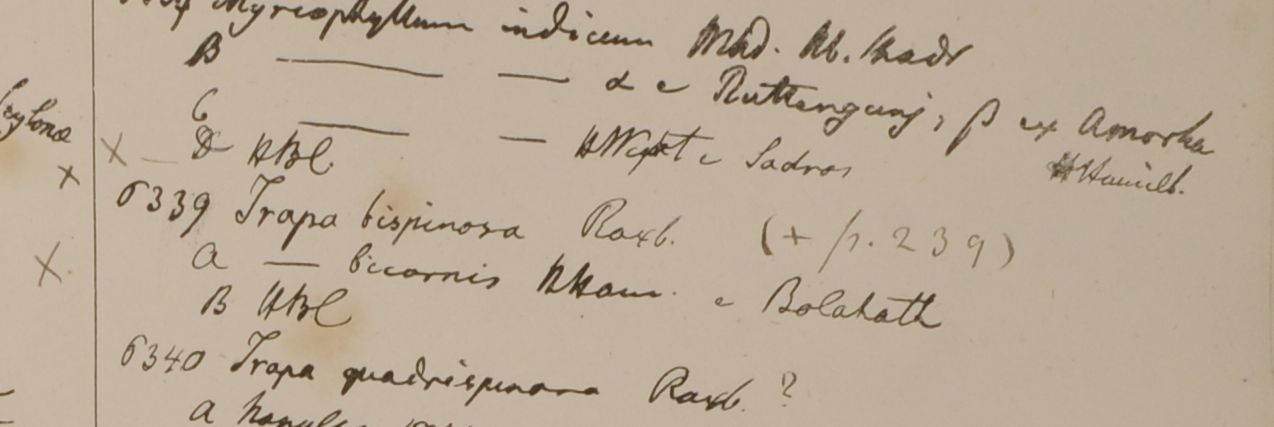 Myriophyllum indicum Mhd. Hb. Madr
B — — α e Ruttengunj, β ex Amorha
C — — HWight e Sadras HHamilt.
Ceylona × × D HBC
× 6339 Trapa bispinosa Roxb. (+ p. 239)
× a — bicornis HHam. e Bolahath
B HBC
6340 Trapa quadrispinosa Roxb. ?
a